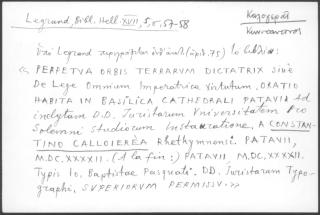 Legrand, Bibl. Hell. XVII, 5, σ. 57-58
Καλογερᾶ
Κωνσταντῖνος
Legrand (ἀριθ. 75) τὸ βιβλίον:
« PERPETVA ORBIS TERRARVM DICTATRIX sive
De Lege Omnium Imperatrice Virtutum. ORATIO
HABITA IN BASILICA CATHEDRALI PATAVII Ad
inclytam D.D. Juristarum Vniversitatem Pro
Solemni studiorum Instauratione, A CONSTAN-
TINO CALLOIERÉA Rhethymnensi. PATAVII,
M.DC.XXXXII. (A la fin:) PATAVII, M.DC.XXXXII.
Typis Io. Baptistae Pasquati. DD. Juristarum Typo-
graphi, SUPERIORUM PERMISSU. »